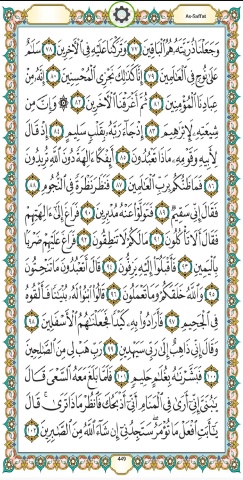 As-Saffat
وَجَعَلْنَا ذُرِّيَّتَهُۥ هُمُ ٱلْبَاقِينَ ٧٧ وَتَرَكْنَا عَلَيْهِ فِى ٱلْـَٔاخِرِينَ ٧٨ سَلَـٰمٌ
عَلَىٰ نُوحٍ فِى ٱلْعَـٰلَمِينَ ٧٩ إِنَّا كَذَٰلِكَ نَجْزِى ٱلْمُحْسِنِينَ ٨٠ إِنَّهُۥ مِنْ
عِبَادِنَا ٱلْمُؤْمِنِينَ ٨١ ثُمَّ أَغْرَقْنَا ٱلْـَٔاخَرِينَ ٨٢ ۞ وَإِنَّ مِن
شِيعَتِهِۦ لَإِبْرَٰهِيمَ ٨٣ إِذْ جَآءَ رَبَّهُۥ بِقَلْبٍ سَلِيمٍ ٨٤ إِذْ قَالَ
لِأَبِيهِ وَقَوْمِهِۦ مَاذَا تَعْبُدُونَ ٨٥ أَئِفْكًا ءَالِهَةً دُونَ ٱللَّهِ تُرِيدُونَ
٨٦ فَمَا ظَنُّكُم بِرَبِّ ٱلْعَـٰلَمِينَ ٨٧ فَنَظَرَ نَظْرَةً فِى ٱلنُّجُومِ ٨٨
فَقَالَ إِنِّى سَقِيمٌ ٨٩ فَتَوَلَّوْا۟ عَنْهُ مُدْبِرِينَ ٩٠ فَرَاغَ إِلَىٰٓ ءَالِهَتِهِمْ
فَقَالَ أَلَا تَأْكُلُونَ ٩١ مَا لَكُمْ لَا تَنطِقُونَ ٩٢ فَرَاغَ عَلَيْهِمْ ضَرْبًۢا
بِٱلْيَمِينِ ٩٣ فَأَقْبَلُوٓا۟ إِلَيْهِ يَزِفُّونَ ٩٤ قَالَ أَتَعْبُدُونَ مَا تَنْحِتُونَ
٩٥ وَٱللَّهُ خَلَقَكُمْ وَمَا تَعْمَلُونَ ٩٦ قَالُوا۟ ٱبْنُوا۟ لَهُۥ بُنْيَـٰنًا فَأَلْقُوهُ
فِى ٱلْجَحِيمِ ٩٧ فَأَرَادُوا۟ بِهِۦ كَيْدًا فَجَعَلْنَـٰهُمُ ٱلْأَسْفَلِينَ ٩٨
وَقَالَ إِنِّى ذَاهِبٌ إِلَىٰ رَبِّى سَيَهْدِينِ ٩٩ رَبِّ هَبْ لِى مِنَ ٱلصَّـٰلِحِينَ
١٠٠ فَبَشَّرْنَـٰهُ بِغُلَـٰمٍ حَلِيمٍ ١٠١ فَلَمَّا بَلَغَ مَعَهُ ٱلسَّعْىَ قَالَ
يَـٰبُنَىَّ إِنِّىٓ أَرَىٰ فِى ٱلْمَنَامِ أَنِّىٓ أَذْبَحُكَ فَٱنظُرْ مَاذَا تَرَىٰ ۚ قَالَ
يَـٰٓأَبَتِ ٱفْعَلْ مَا تُؤْمَرُ ۖ سَتَجِدُنِىٓ إِن شَآءَ ٱللَّهُ مِنَ ٱلصَّـٰبِرِينَ ١٠٢
449